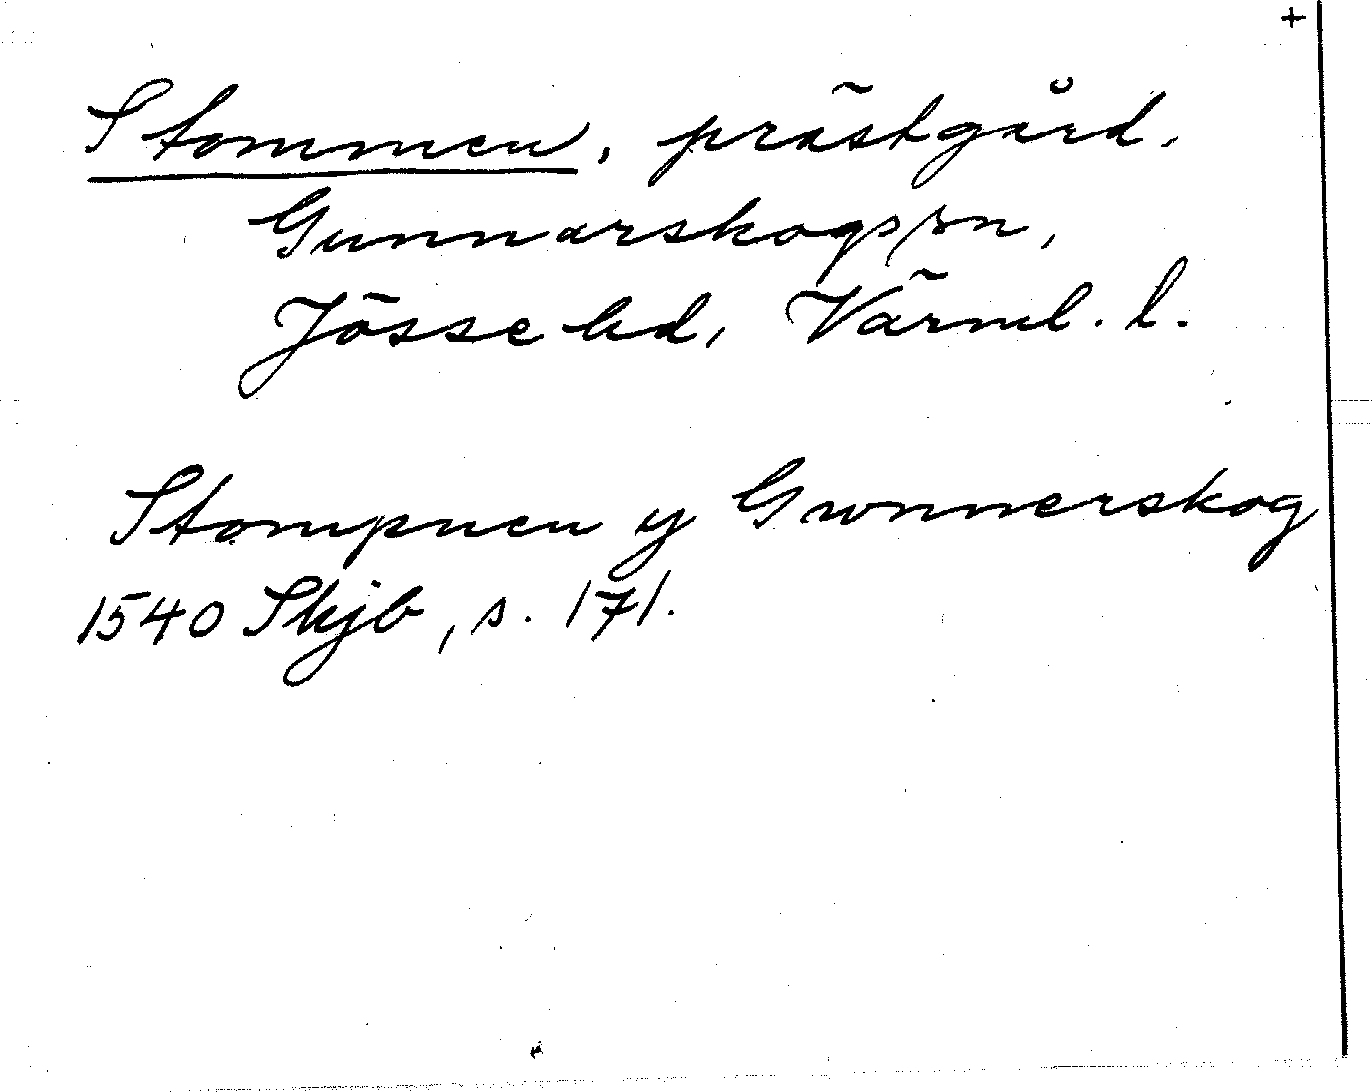 +
Stommen, prästgård.
Gunnarskogs sn,
Jösse hd, Värml. l.
Stompnen y Gwnnerskog
1540 Skjb, s. 171.